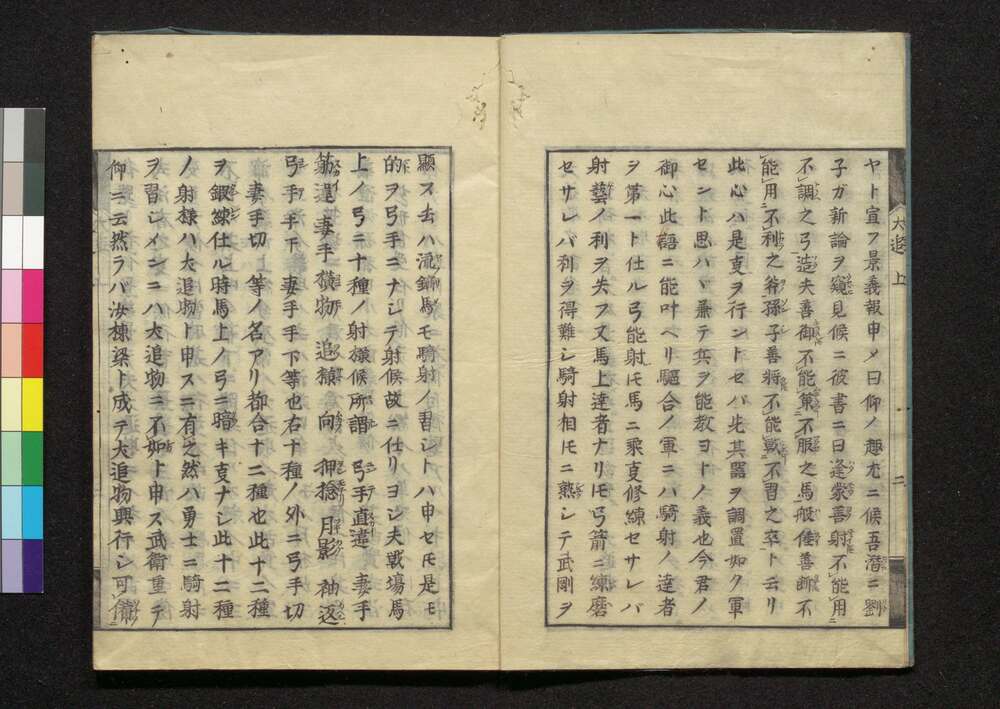 ヤト宣フ景義報申メ曰仰ノ趣尤ニ候吾潜ニ劉
子ガ新論ヲ窺見候ニ彼書ニ曰逢蒙善射不能用
不調之弓造父善御不能策不服之馬般倕善斷不
能用不利之斧孫子善將不能戰不習之卒ト云リ
此心ハ是㕝ヲ行ントセバ先其器ヲ調置如ク軍
セント思ハヾ兼テ兵ヲ能教ヨトノ義也今君ノ
御心此語ニ能叶ヘリ驅合ノ軍ニハ騎射ノ達者
ヲ第一ト仕ル弓能射𪜈馬ニ乘㕝修練セサレバ
射藝ノ利ヲ失フ又馬上達者ナリ𪜈弓箭ニ練磨
セサレバ利ヲ得難シ騎射相𪜈ニ熟シテ武剛ヲ
犬追 上 二
顯ス去ハ流鏑馬モ騎射ノ習シトハ申セ𪜈是モ
的ヲ弓手ニナシテ射候故ニ仕リヨシ夫戰場馬
上ノ弓ニ十種ノ射樣候所謂 弓手直違 妻手
筋違妻手横物 追樣 向 押捻 月影 袖返
弓手手下 妻手手下等也右十種ノ外ニ弓手切
妻手切 等ノ名アリ都合十二種也此十二種
ヲ鍛練仕ル時馬上ノ弓ニ暗キ㕝ナシ此十二種
ノ射樣ハ犬追物ト申スニ有之然ハ勇士ニ騎射
ヲ習シメンニハ犬追物ニ不如ト申ス武衛重テ
仰ニ云然ラバ汝棟梁ト成テ犬追物興行シ可備